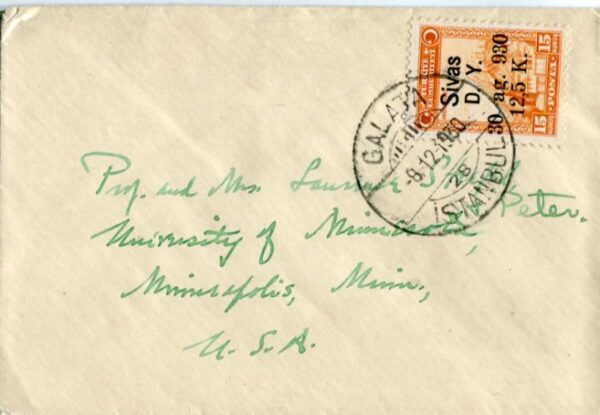 TÜRKİYE
CÜMHURİYETİ
15 POSTA 15
Sivas
D. Y.
30 ag. 930
12.5 K.
GALATA
-8.12.1930
28
İSTANBUL
Prof. and Mrs. Laurence
& Peter.
University of Minnesota,
Minneapolis, Minn.,
U. S. A.